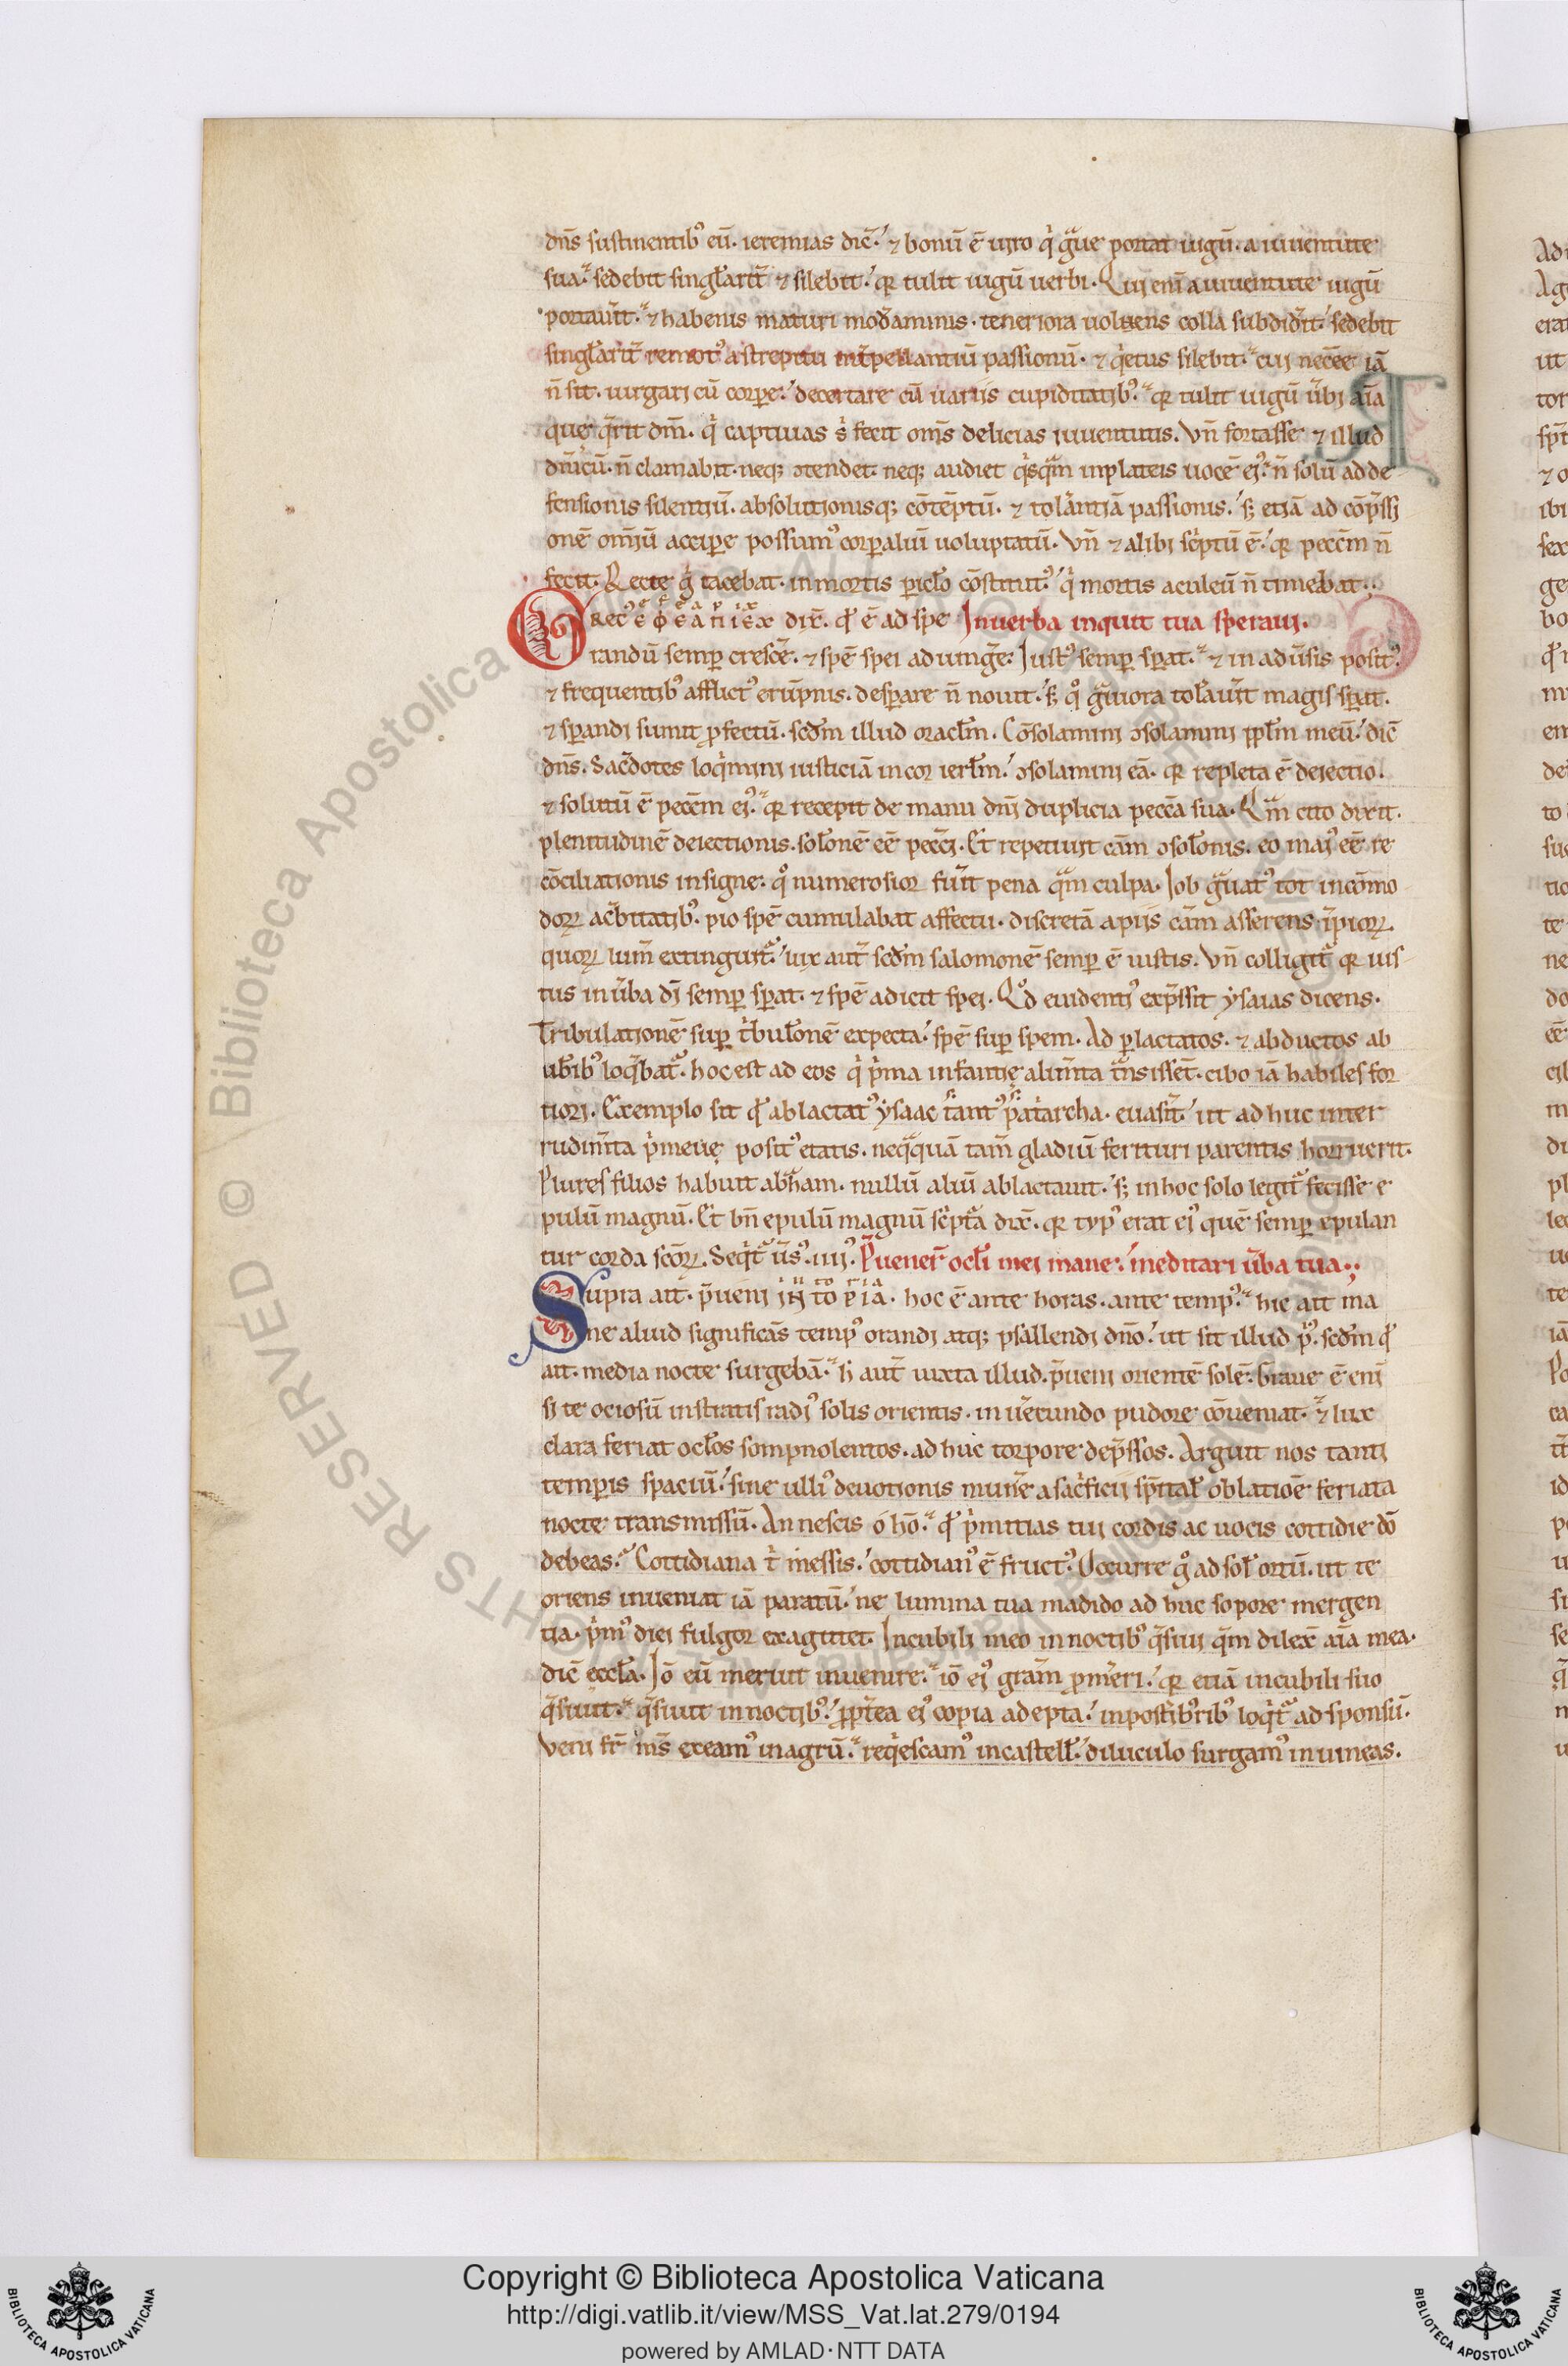 dn̄s sustinentibꝰ eū. ieremias dic̄. ⁊ bonū ē uiro q̇ gͣue portat iugū. a iuuentute
sua. sedebit singlarit̄ ⁊ silebit. qꝛ tulit iugū uerbi. Qui eni a iuuentute iugū
portauit. ⁊ habenis maturi mod̄aminis. teneriora uoluens colla subdid̄it. sedebit
singlarit̄ remotꝰ a strepitu int̄pellantiū passionū. ⁊ q̇etus silebit. cui necēe iā
n̄ sit. iurgari cū corpe. decertare cū uariis cupiditatibꝰ. qꝛ tulit iugū ūbi aīa
que q̄rit dm̄. q̇ captiuas s̄ fecit om̄s delicias iuuentutis. Vn̄ fortasse ⁊ illud
dn̄icū. n̄ clamabit. neqꝫ ↄtendet. neqꝫ audiet q̇sqͣm in plateis uocē eiꝰ. n̄ solū ad de
fensionis silentiū. absolutionisqꝫ cōtēptū. ⁊ tolāntiā passionis. sꝫ etiā ad cōp̄ssi
onē om̄iū accipe possumꝰ corpaliū uoluptatū. Vn̄ ⁊ alibi sċptū ē. qꝛ pecc̄m n̄
fecit. Recte g̊ tacebat. in mortis piclo cōstitutꝰ. q̇ mortis aculeū n̄ timebat.
dix̄. qᷤ ē ad spe In uerba inquit tua speraui.
Orandū semp cresc̄e. ⁊ spē spei adiunḡe. Iustꝰ semp spat. ⁊ in adūsis positꝰ
⁊ frequentibꝰ afflictꝰ erūpnis. despare n̄ nouit. sꝫ q̊ gͣuiora tolauit magis spat.
⁊ spandi sumit ꝓfectū. scd̄m illud oraclm. Cōsolamini ↄsolamini pplm meū. dic̄
dn̄s. Sac̄dotes loq̇mini iusticiā in cor ierlm. ↄsolamini eā. qꝛ repleta ē deiectio.
⁊ solutū ē pecc̄m eiꝰ. qꝛ recepit de manu dn̄i duplicia pecc̄a sua. Qͣm cito dixit.
plenitudinē deiectionis. solonē eē pecc̄i. Et repetiuit cām ↄsolonis. eo maiꝰ eē re
cōciliationis insigne. q̊ numerosior fuit pena qͣm culpa. Iob gͣuatꝰ tot incōmo
doꝝ ac̄bitatibꝰ. pio spē cumulabat affectu. discretā a piis cām asserens īpioꝝ.
quoꝝ lum̄ extinguitͣ. lux aut̄ scd̄m salomonē semp ē iustis. Vn̄ colligitͣ qꝛ ius
tus in ūba di semp spat. ⁊ spē adicit spei. Qd̊ euidentiꝰ exp̄ssit ysaias dicens.
Tribulationē sup t̄bulonē expecta. spē sup spem. Ad plactatos. ⁊ abductos ab
ub̄ibꝰ loq̄batͣ. hoc est ad eos q̇ p̄ma infantię alim̄ta tͣnsissēt. cibo iā habiles for
tiori. Exemplo sit qᷤ ablactatꝰ ysaac tantꝰ pat̄archa. euasit. ut ad huc inter
rudim̄ta ṗmeuę positꝰ etatis. neqͣquā tam̄ gladiū ferituri parentis horruerit.
Plures filios habuit abͣham. nullū aliū ablactauit. sꝫ in hoc solo legitͣ fecisse e
pulū magnū. Et bn̄ epulū magnū sċptͣa dix̄. qꝛ typꝰ erat eiꝰ quē semp epulan
tur corda scōꝝ. Seq̇tͣ ūsꝰ. iiii. P̄uener̄ ocli mei mane. meditari ūba tua.
Supra ait. p̄ueni hoc ē ante horas. ante tempꝰ. hic ait ma
ne aliud significās tempꝰ orandi atqꝫ psallendi dn̄o. ut sit illud p̊. scd̄m qᷤ
ait. media nocte surgebā. h̄ aut̄ iuxta illud. p̄ueni orientē solē. Graue ē eni
si te ociosū in stratis radiꝰ solis orientis. inuēcundo pudore cōueniat. ⁊ lux
clara feriat oclos sompnolentos. ad huc torpore dep̄ssos. Arguit nos tanti
tempis spaciū. sine ulliꝰ deuotionis mun̄e a sac̄ficii sp̄ital oblatiōe feriata
nocte transmissū. An nescis ó hō. qᷤ ṗmitias tui cordis ac uocis cottidie dō
debeas. Cottidiana t̄ messis. cottidianꝰ ē fructꝰ. Occurre g̊ ad sol ortū. ut te
oriens inueniat iā paratū. ne lumina tua madido ad huc sopore mergen
tia. ṗmꝰ diei fulgor exagitet. In cubili meo in noctibꝰ q̄siui q̄m dilex̄ aīa mea.
dic̄ eccla. Iō eū meruit inuenire. iō eiꝰ grām ꝓm̄eri. qꝛ etiā in cubili suo
q̄siuit. q̄siuit in noctibꝰ. ꝓpt̄ea eiꝰ copia adepta. in post̄ioribꝰ loq̇tͣ ad sponsū.
Veni fr̄ m̄s exeamꝰ in agrū. req̇escamꝰ in castell. diluculo surgamꝰ in uineas.
Copyright © Biblioteca Apostolica Vaticana
http://digi.vatlib.it/view/MSS_Vat.lat.279/0194
powered by AMLAD·NTT DATA